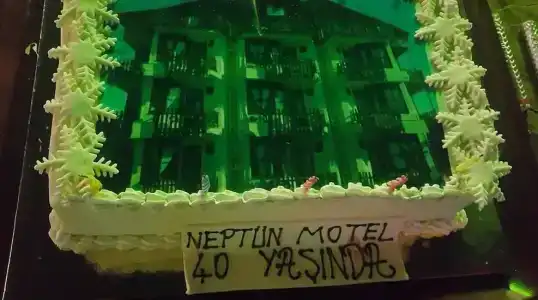 NEPTÜN MOTEL
40 YAŞINDA